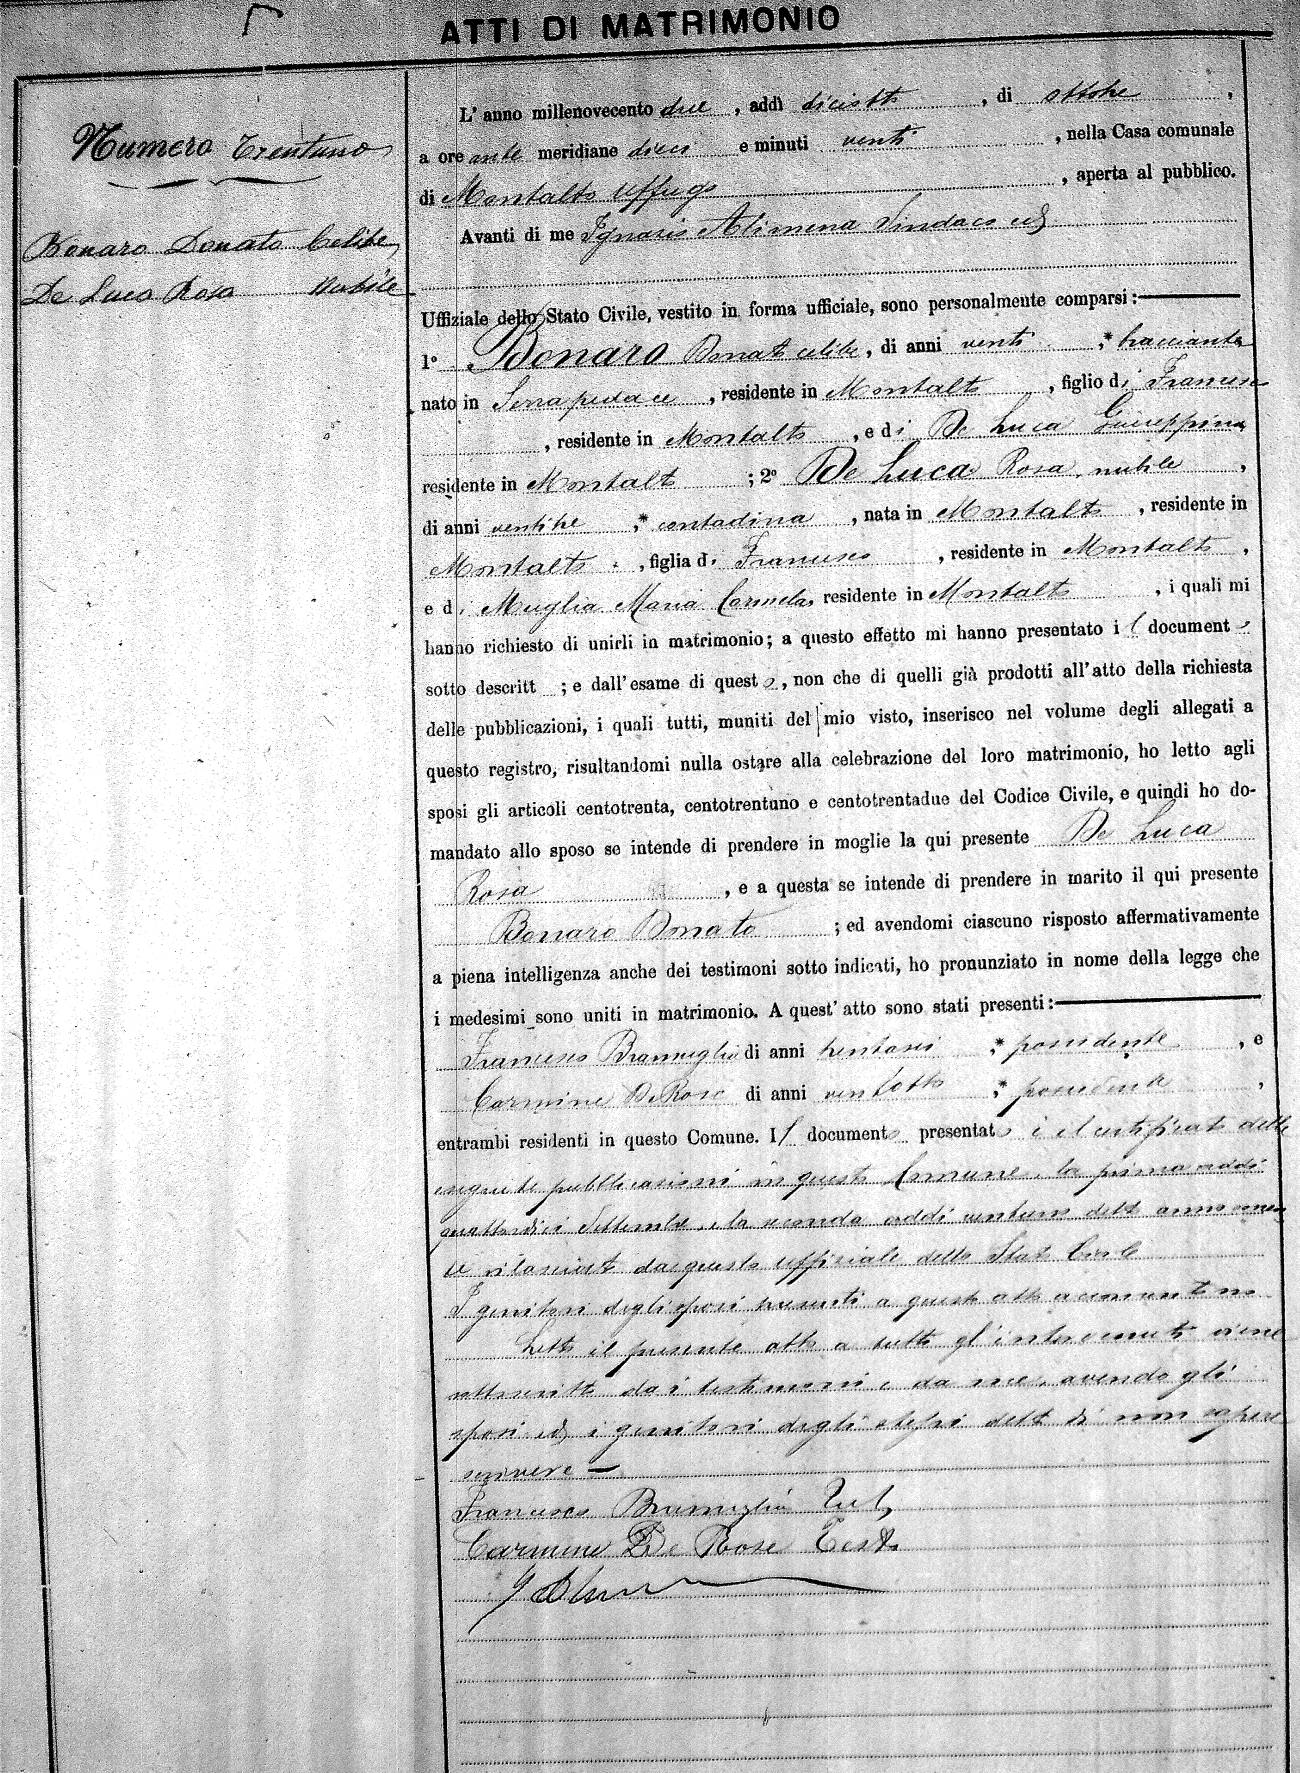 ATTI DI MATRIMONIO
Numero Trentuno
Bonaro Donato Celibe
De Luca Rosa Nubile
L' anno millenovecento due, addì diciotto, di ottobre,
a ore ante meridiane dieci e minuti venti, nella Casa comunale
di Montalto Uffugo, aperta al pubblico.
Avanti di me Ignazio Alimena Sindaco ed
Uffiziale dello Stato Civile, vestito in forma ufficiale, sono personalmente comparsi:
1º Bonaro Donato celibe, di anni venti, * bracciante
nato in Serra pedace, residente in Montalto, figlio di Francesco
, residente in Montalto, e di De Luca Giuseppina
residente in Montalto; 2º De Luca Rosa, nubile,
di anni ventitre, * contadina, nata in Montalto, residente in
Montalto, figlia di Francesco, residente in Montalto,
e di Muglia Maria Carmela, residente in Montalto, i quali mi
hanno richiesto di unirli in matrimonio; a questo effetto mi hanno presentato il documento
sotto descritt ; e dall'esame di questo, non che di quelli già prodotti all'atto della richiesta
delle pubblicazioni, i quali tutti, muniti del mio visto, inserisco nel volume degli allegati a
questo registro, risultandomi nulla ostare alla celebrazione del loro matrimonio, ho letto agli
sposi gli articoli centotrenta, centotrentuno e centotrentadue del Codice Civile, e quindi ho do-
mandato allo sposo se intende di prendere in moglie la qui presente De Luca
Rosa, e a questa se intende di prendere in marito il qui presente
Bonaro Donato; ed avendomi ciascuno risposto affermativamente
a piena intelligenza anche dei testimoni sotto indicati, ho pronunziato in nome della legge che
i medesimi sono uniti in matrimonio. A quest' atto sono stati presenti:
Francesco Bramuglia di anni trentasei, * possidente, e
Carmine De Rose di anni ventotto, * possidente,
entrambi residenti in questo Comune. Il documento presentato è il certificato delle
eseguite pubblicazioni in questo Comune, la prima addì
quattordici Settembre, e la seconda addì ventuno detto anno corren
te rilasciato da questo uffiziale dello Stato Civile
I genitori degli sposi presenti a questo atto acconsentono
Letto il presente atto a tutti gl'intervenuti viene
sottoscritto dai testimoni e da me, avendo gli
sposi ed i genitori degli stessi detto di non sapere
scrivere —
Francesco Bramuglia Test
Carmine De Rose Testo